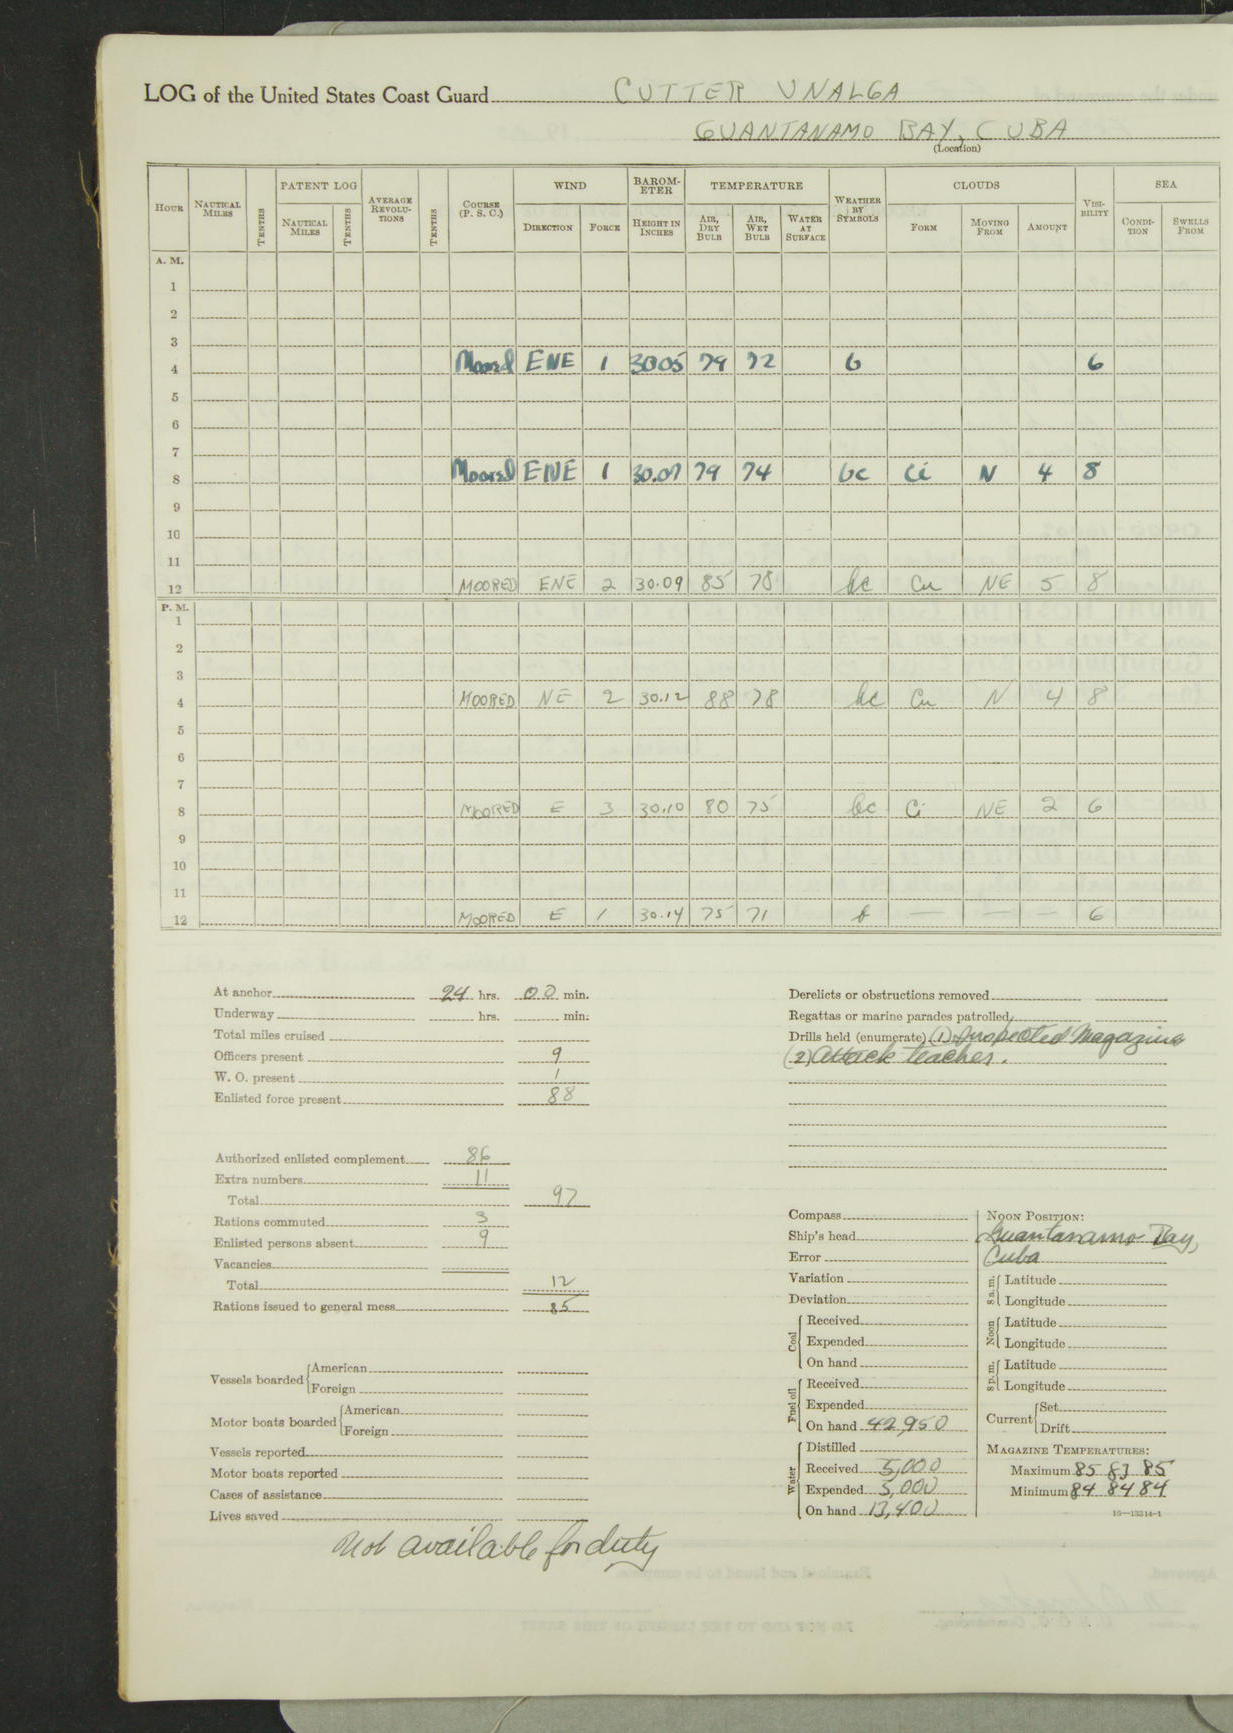 LOG of the United States Coast Guard CUTTER UNALGA
GUANTANAMO BAY, CUBA
(Location)
HOUR NAUTICAL MILES TENTHS PATENT LOG NAUTICAL MILES TENTHS AVERAGE REVOLU-TIONS TENTHS COURSE (P. S. C.) WIND DIRECTION FORCE BAROM-ETER HEIGHT IN INCHES TEMPERATURE AIR, DRY BULB AIR, WET BULB WATER AT SURFACE WEATHER BY SYMBOLS CLOUDS FORM MOVING FROM AMOUNT VISI-BILITY SEA CONDI-TION SWELLS FROM
A. M.
1
2
3
4 Moored ENE 1 30.05 79 72 b 6
5
6
7
8 Moored ENE 1 30.07 79 74 bc Ci N 4 8
9
10
11
12 MOORED ENE 2 30.09 85 78 bc Cu NE 5 8
P. M.
1
2
3
4 MOORED NE 2 30.12 88 78 bc Cu N 4 8
5
6
7
8 MOORED E 3 30.10 80 75 bc Ci NE 2 6
9
10
11
12 MOORED E 1 30.14 75 71 b — — — 6
At anchor 24 hrs. 00 min.
Underway hrs. min.
Total miles cruised
Officers present 9
W. O. present 1
Enlisted force present 88
Authorized enlisted complement 86
Extra numbers 11
Total 97
Rations commuted 3
Enlisted persons absent 9
Vacancies
Total 12
Rations issued to general mess 85
Vessels boarded American
Foreign
Motor boats boarded American
Foreign
Vessels reported
Motor boats reported
Cases of assistance
Lives saved
Not available for duty
Derelicts or obstructions removed
Regattas or marine parades patrolled
Drills held (enumerate) (1) Inspected Magazines
(2) Attack teacher.
Compass
Ship's head
Error
Variation
Deviation
Coal Received
Expended
On hand
Fuel oil Received
Expended
On hand 42,950
Water Distilled
Received 5,000
Expended 5,000
On hand 13,400
NOON POSITION:
Guantanamo Bay,
Cuba
8 a.m. Latitude
Longitude
Noon Latitude
Longitude
8 p.m. Latitude
Longitude
Current Set
Drift
MAGAZINE TEMPERATURES:
Maximum 85 83 85
Minimum 84 84 84